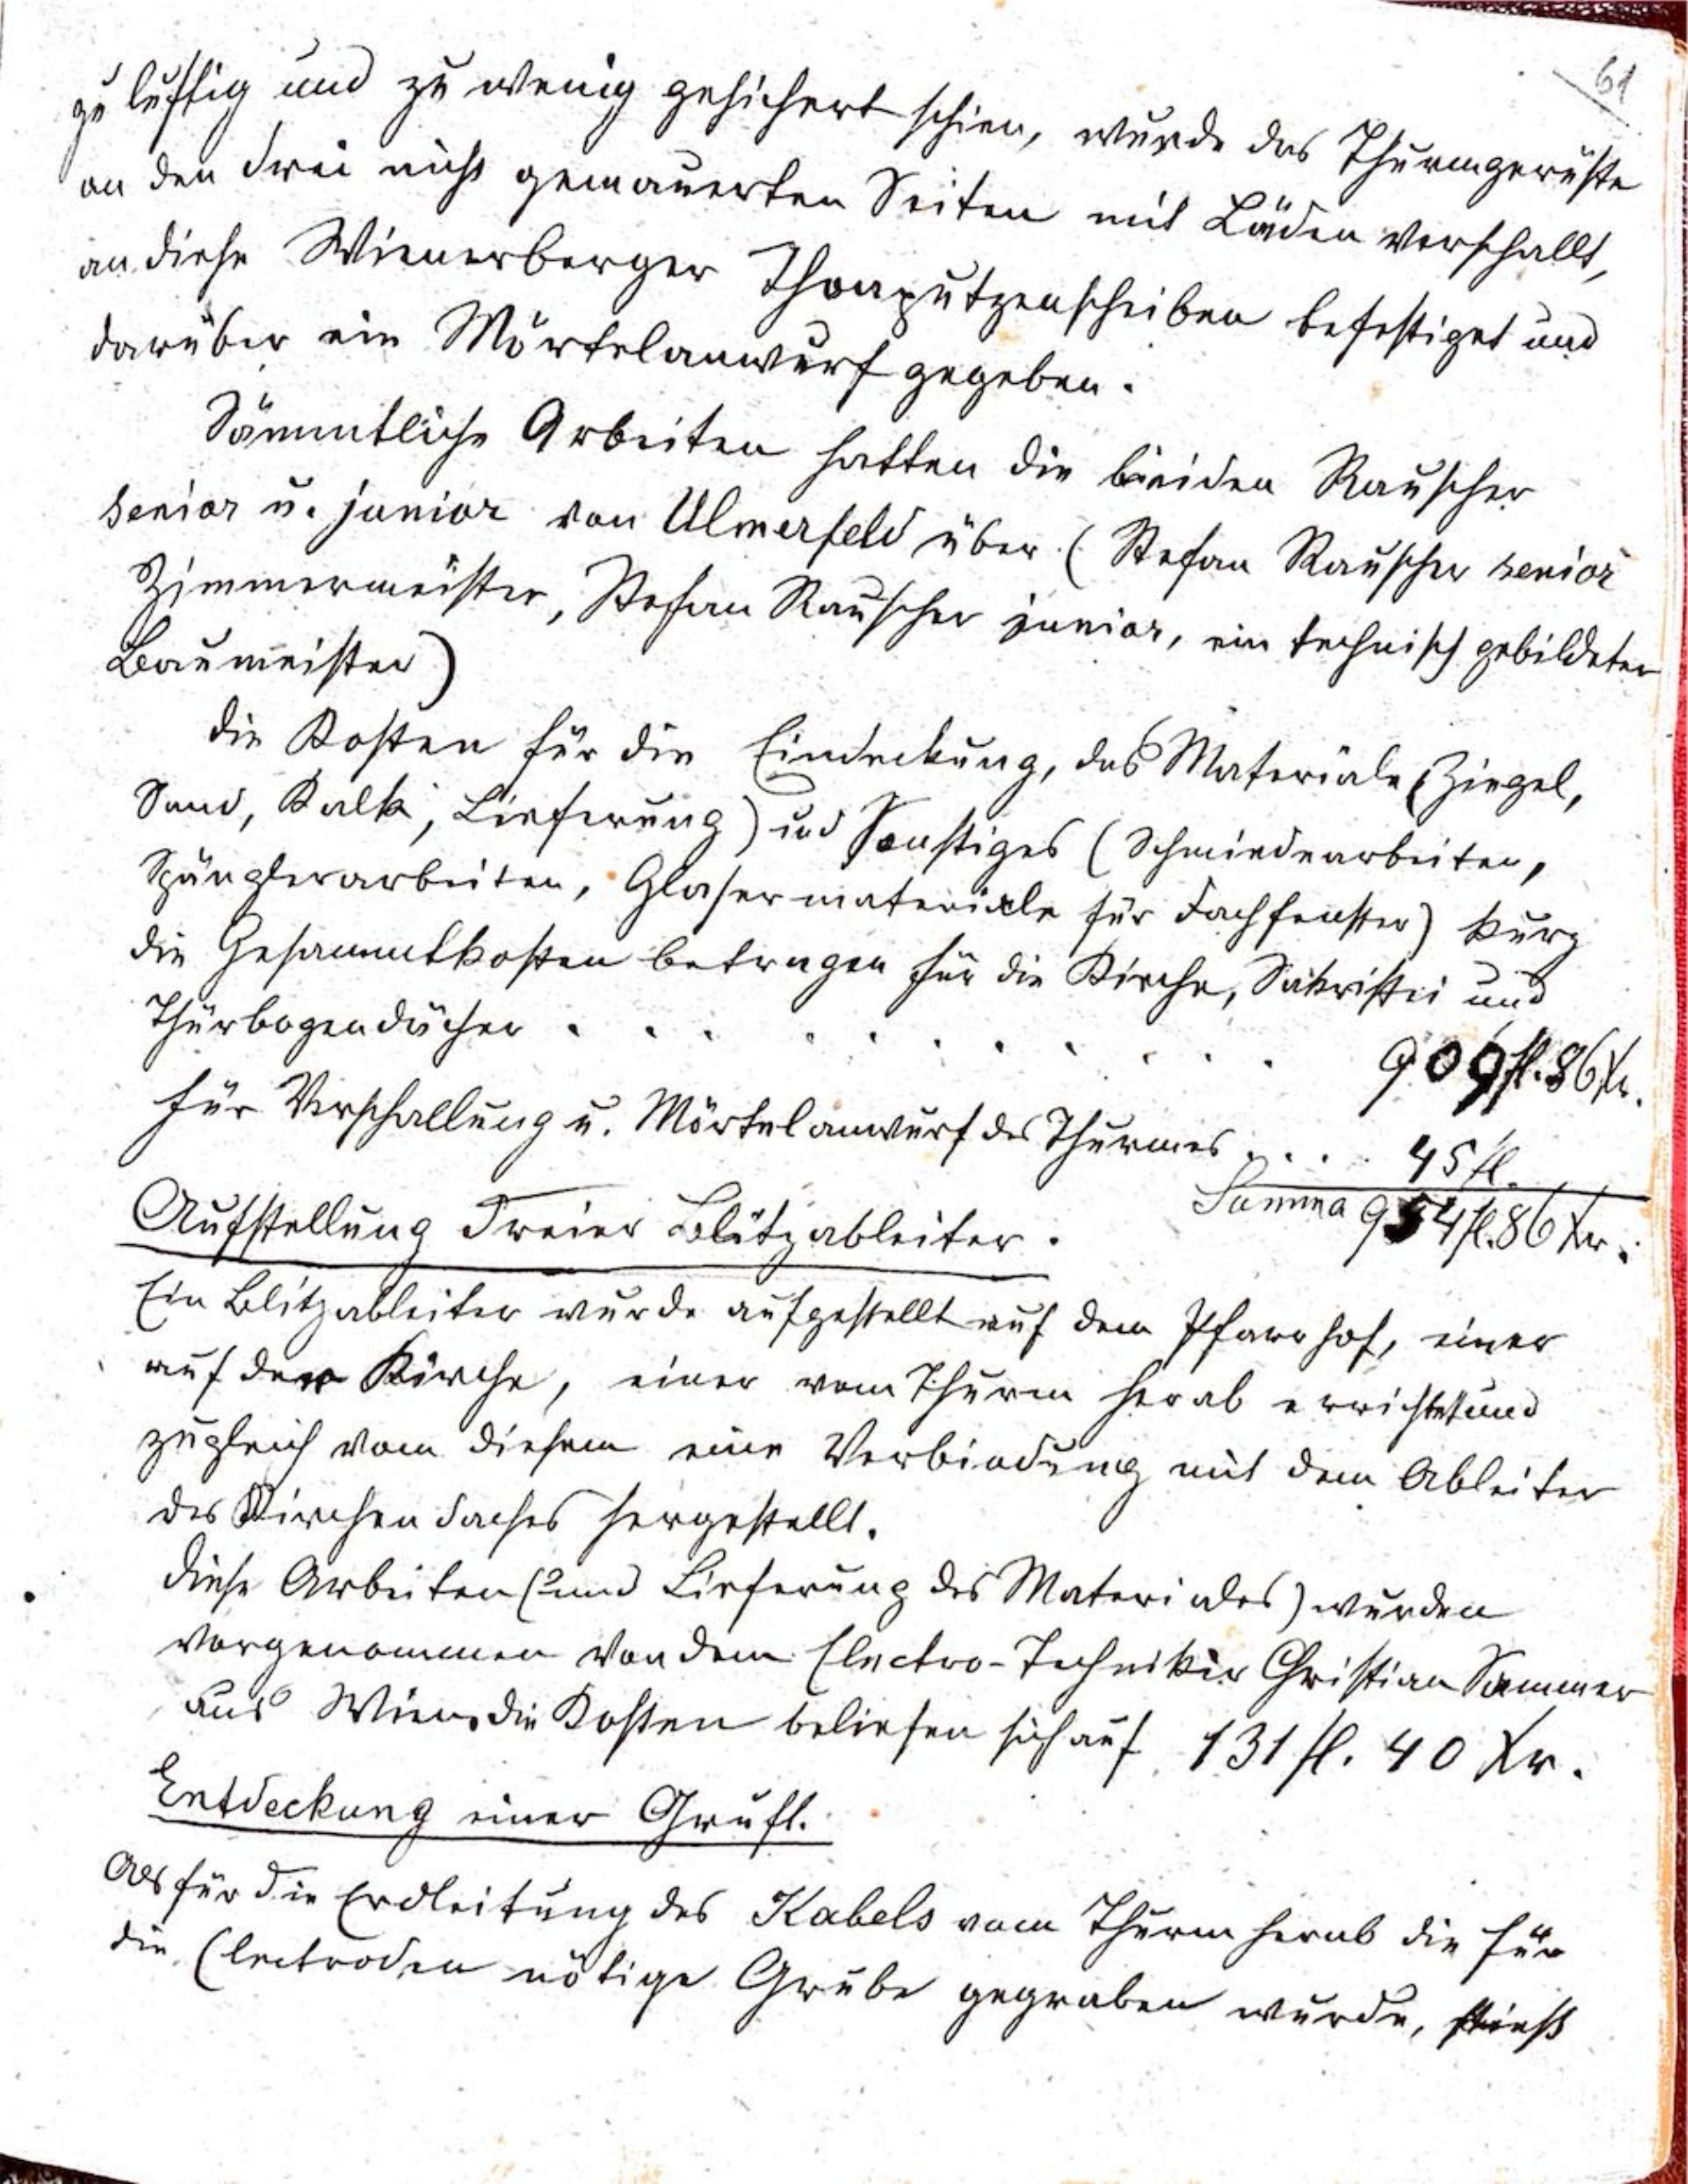 61
zu luftig und zu wenig gesichert schien, wurde das Thurmgerüste
an den drei nicht gemauerten Seiten mit Läden verschallt,
an diese Wienerberger Thonputzenscheiben befestiget und
darüber ein Mörtelanwurf gegeben.
Sämmtliche Arbeiten hatten die beiden Rauscher
senior u. junior von Ulmerfeld über (Stefan Rauscher senior
Zimmermeister, Stefan Rauscher junior, ein technisch gebildeter
Baumeister)
Die Kosten für die Eindeckung, das Materiale (Ziegel,
Sand, Kalk, Lieferung) und Sonstiges (Schmiedearbeiten,
Spänglerarbeiten, Glasermateriale für Dachfenster) kurz
die Gesammtkosten betragen für die Kirche, Sakristei und
Thürbogendächer . . . . . . . . . . . 909 fl. 86 Xr.
für Verschallung u. Mörtelanwurf des Thurmes . . . . 45 fl.
Summa 954 fl. 86 Xr.
Aufstellung dreier Blitzableiter.
Ein Blitzableiter wurde aufgestellt auf dem Pfarrhof, einer
auf der Kirche, einer vom Thurm herab errichtet und
zugleich vom diesem eine Verbindung mit dem Ableiter
des Kirchendaches hergestellt.
Diese Arbeiten (und Lieferung des Materiales) wurden
vorgenommen von dem Electro-Techniker Christian Sammer
aus Wien, die Kosten beliefen sich auf 131 fl. 40 Xr.
Entdeckung einer Gruft.
Als für die Erdleitung des Kabels vom Thurm herab die für
die Electroden nötige Grube gegraben wurde, stieß